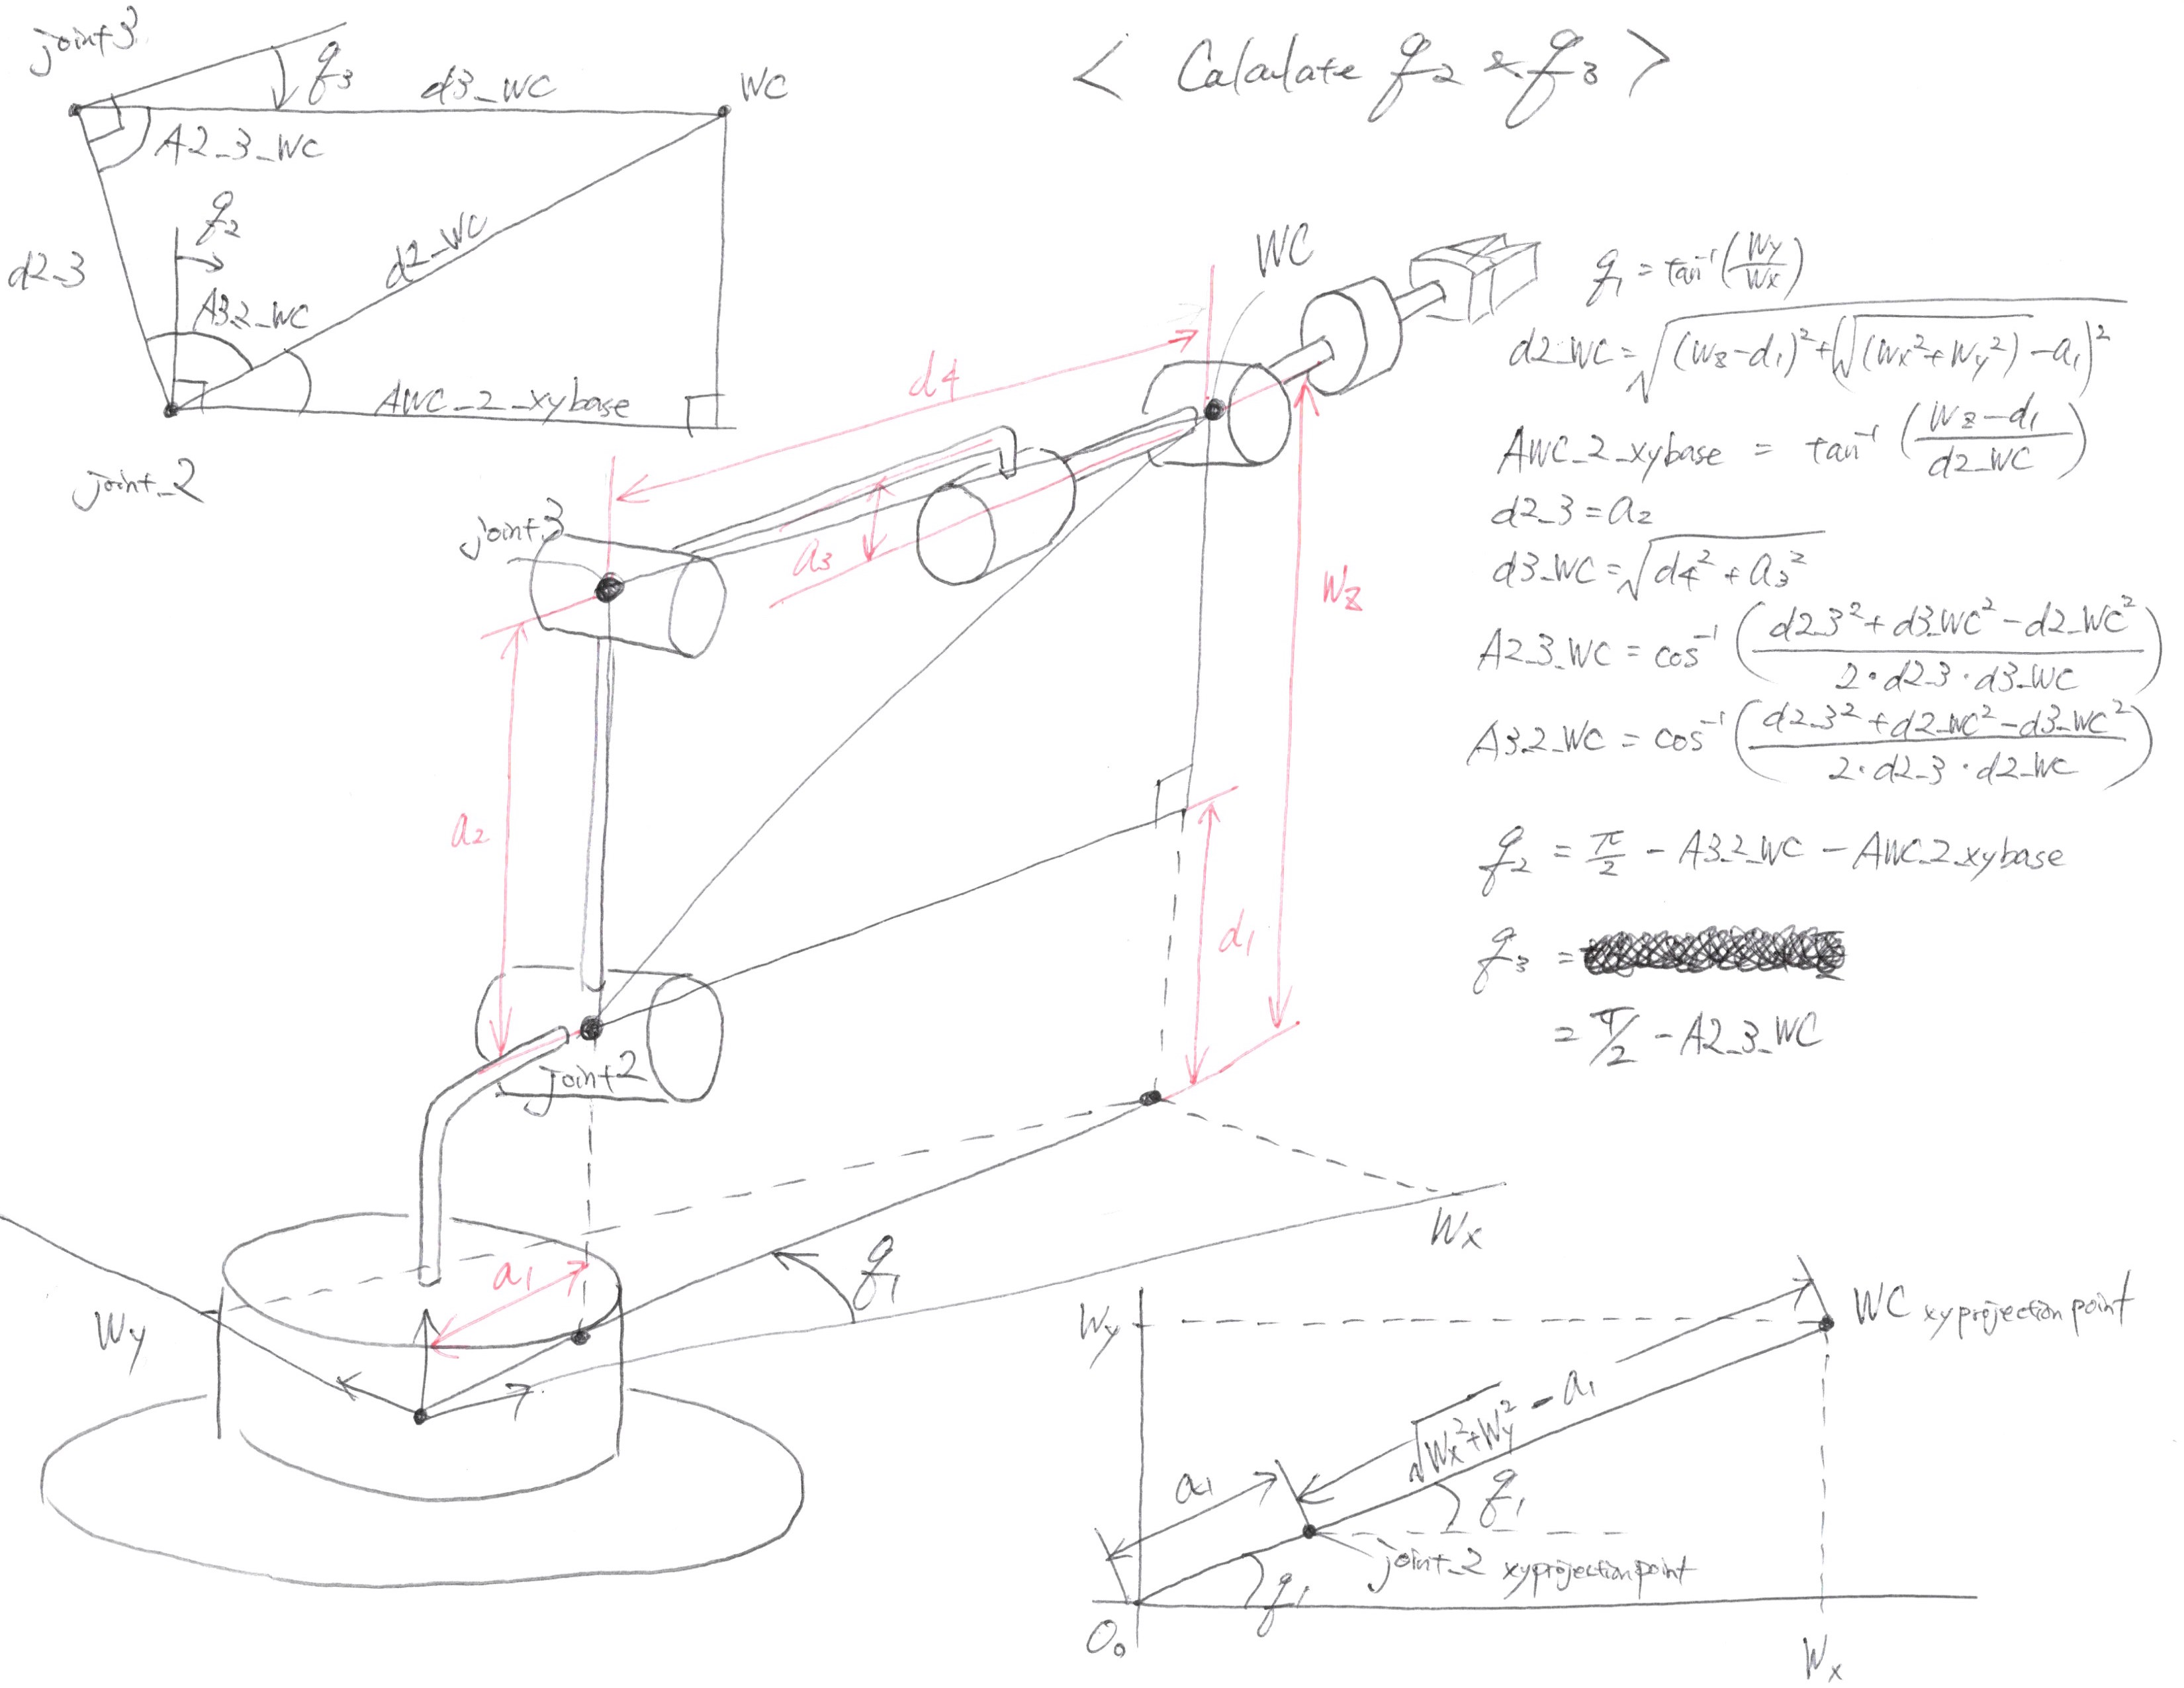 < Calculate q2 & q3 >
joint3
q3
d3_WC
WC
A2_3_WC
q2
d2_3
d2_WC
A3_2_WC
AWC_2_xybase
joint_2
WC
d4
joint3
a3
Wz
a2
d1
joint2
a1
q1
Wx
Wy
q1 = tan⁻¹(Wy/Wx)
d2_WC = √((Wz-d1)² + (√(Wx²+Wy²) - a1)²)
AWC_2_xybase = tan⁻¹((Wz-d1)/d2_WC)
d2_3 = a2
d3_WC = √(d4² + a3²)
A2_3_WC = cos⁻¹((d2_3² + d3_WC² - d2_WC²)/(2·d2_3·d3_WC))
A3_2_WC = cos⁻¹((d2_3² + d2_WC² - d3_WC²)/(2·d2_3·d2_WC))
q2 = π/2 - A3_2_WC - AWC_2_xybase
q3 =
= π/2 - A2_3_WC
Wy
WC xy projection point
√(Wx²+Wy²) - a1
a1
q1
joint_2 xy projection point
q1
O0
Wx